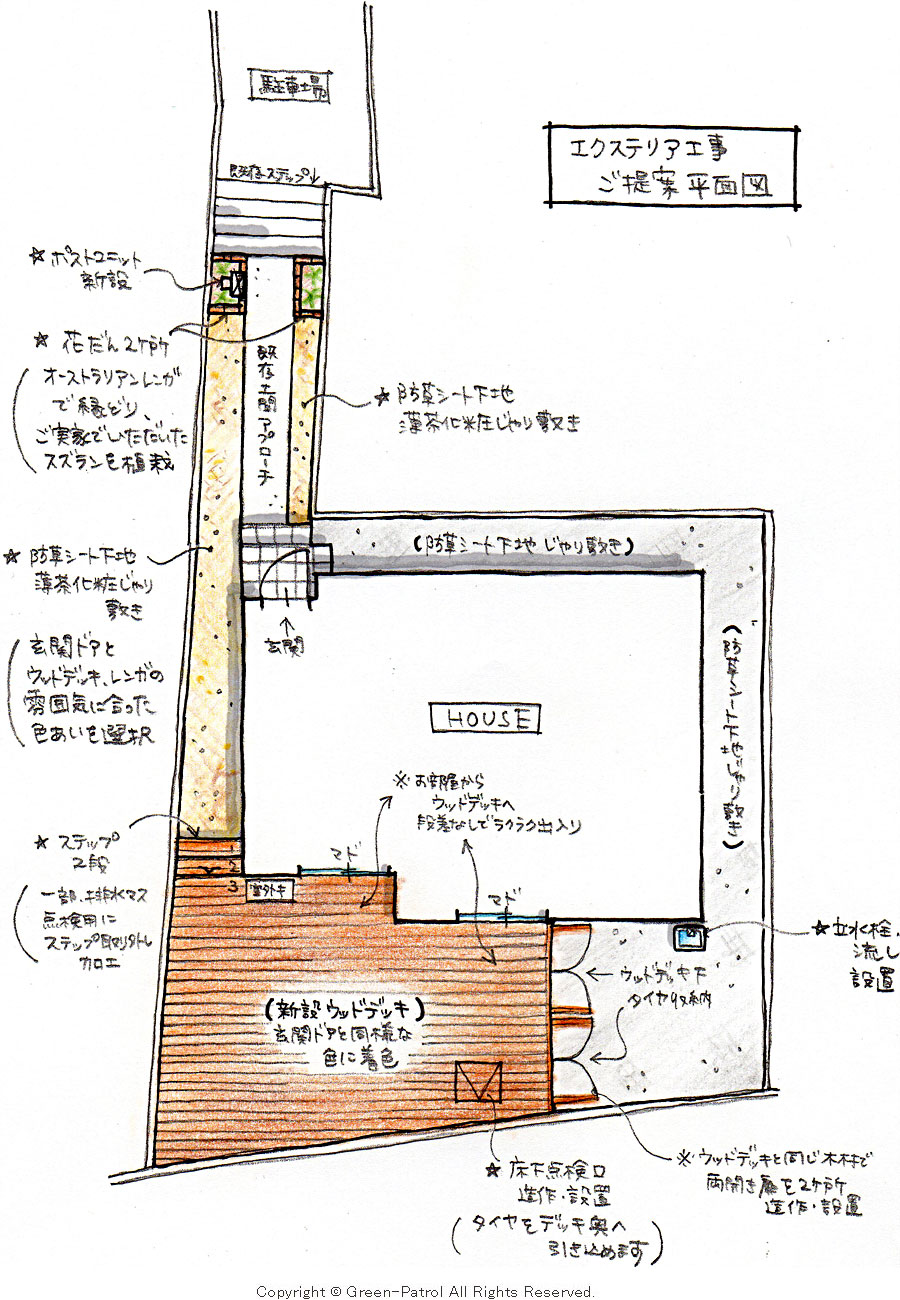 駐車場
エクステリア工事
ご提案平面図
既存ステップ↓
☆ポストユニット
新設
☆花だん2ヶ所
(オーストラリアンレンガ
で縁どり、
ご実家でいただいた
スズランを植栽
既存土間アプローチ
☆防草シート下地
薄茶化粧じゃり敷き
(防草シート下地じゃり敷き)
☆防草シート下地
薄茶化粧じゃり
敷き
(玄関ドアと
ウッドデッキ、レンガの
雰囲気に合った
色あいを選択
↑
玄関
HOUSE
(防草シート下地じゃり敷き)
※お部屋から
ウッドデッキへ
段差なしでラクラク出入り
☆ステップ
2段
(一部、排水マス
点検用に
ステップ取り外し
加工
1
2
3
室外キ
マド
マド
☆立水栓、
流し
設置
ウッドデッキ下
タイヤ収納
(新設ウッドデッキ)
玄関ドアと同様な
色に着色
☆床下点検口
造作・設置
(タイヤをデッキ奥へ
引き込めます)
※ウッドデッキと同じ木材で
両開き扉を2ヶ所
造作・設置
Copyright © Green-Patrol All Rights Reserved.